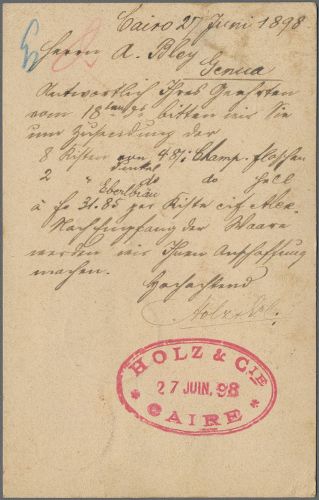 Cairo 27 Juni 1898
Herrn A. Bley
Genua
Antwortlich Ihres Geehrten
vom 18 bitten wir Sie
um Zusendung der
8 Kisten von 48/1 Champ. flaschen
dunkel
2 " do do hell
Eberlbräu
à fr 31.85 per Kiste cif Alex.
Nach Empfang der Waare
werden wir Ihnen Anschaffung
machen.
Hochachtend
Holz & Cie.
HOLZ & CIE
27 JUIN. 98
* CAIRE *